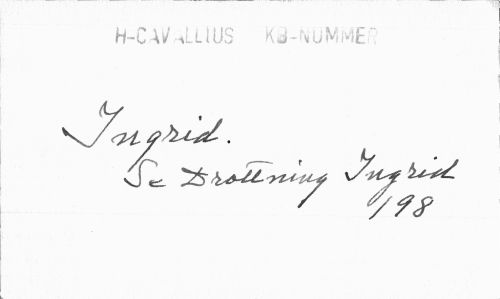 H-CAVALLIUS KB-NUMMER
Ingrid.
Se Drottning Ingrid
198